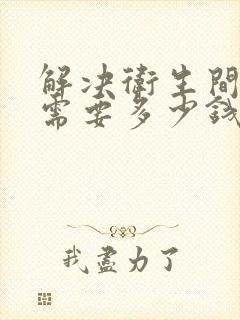 解决衛生間
需要多少錢
我盡力了